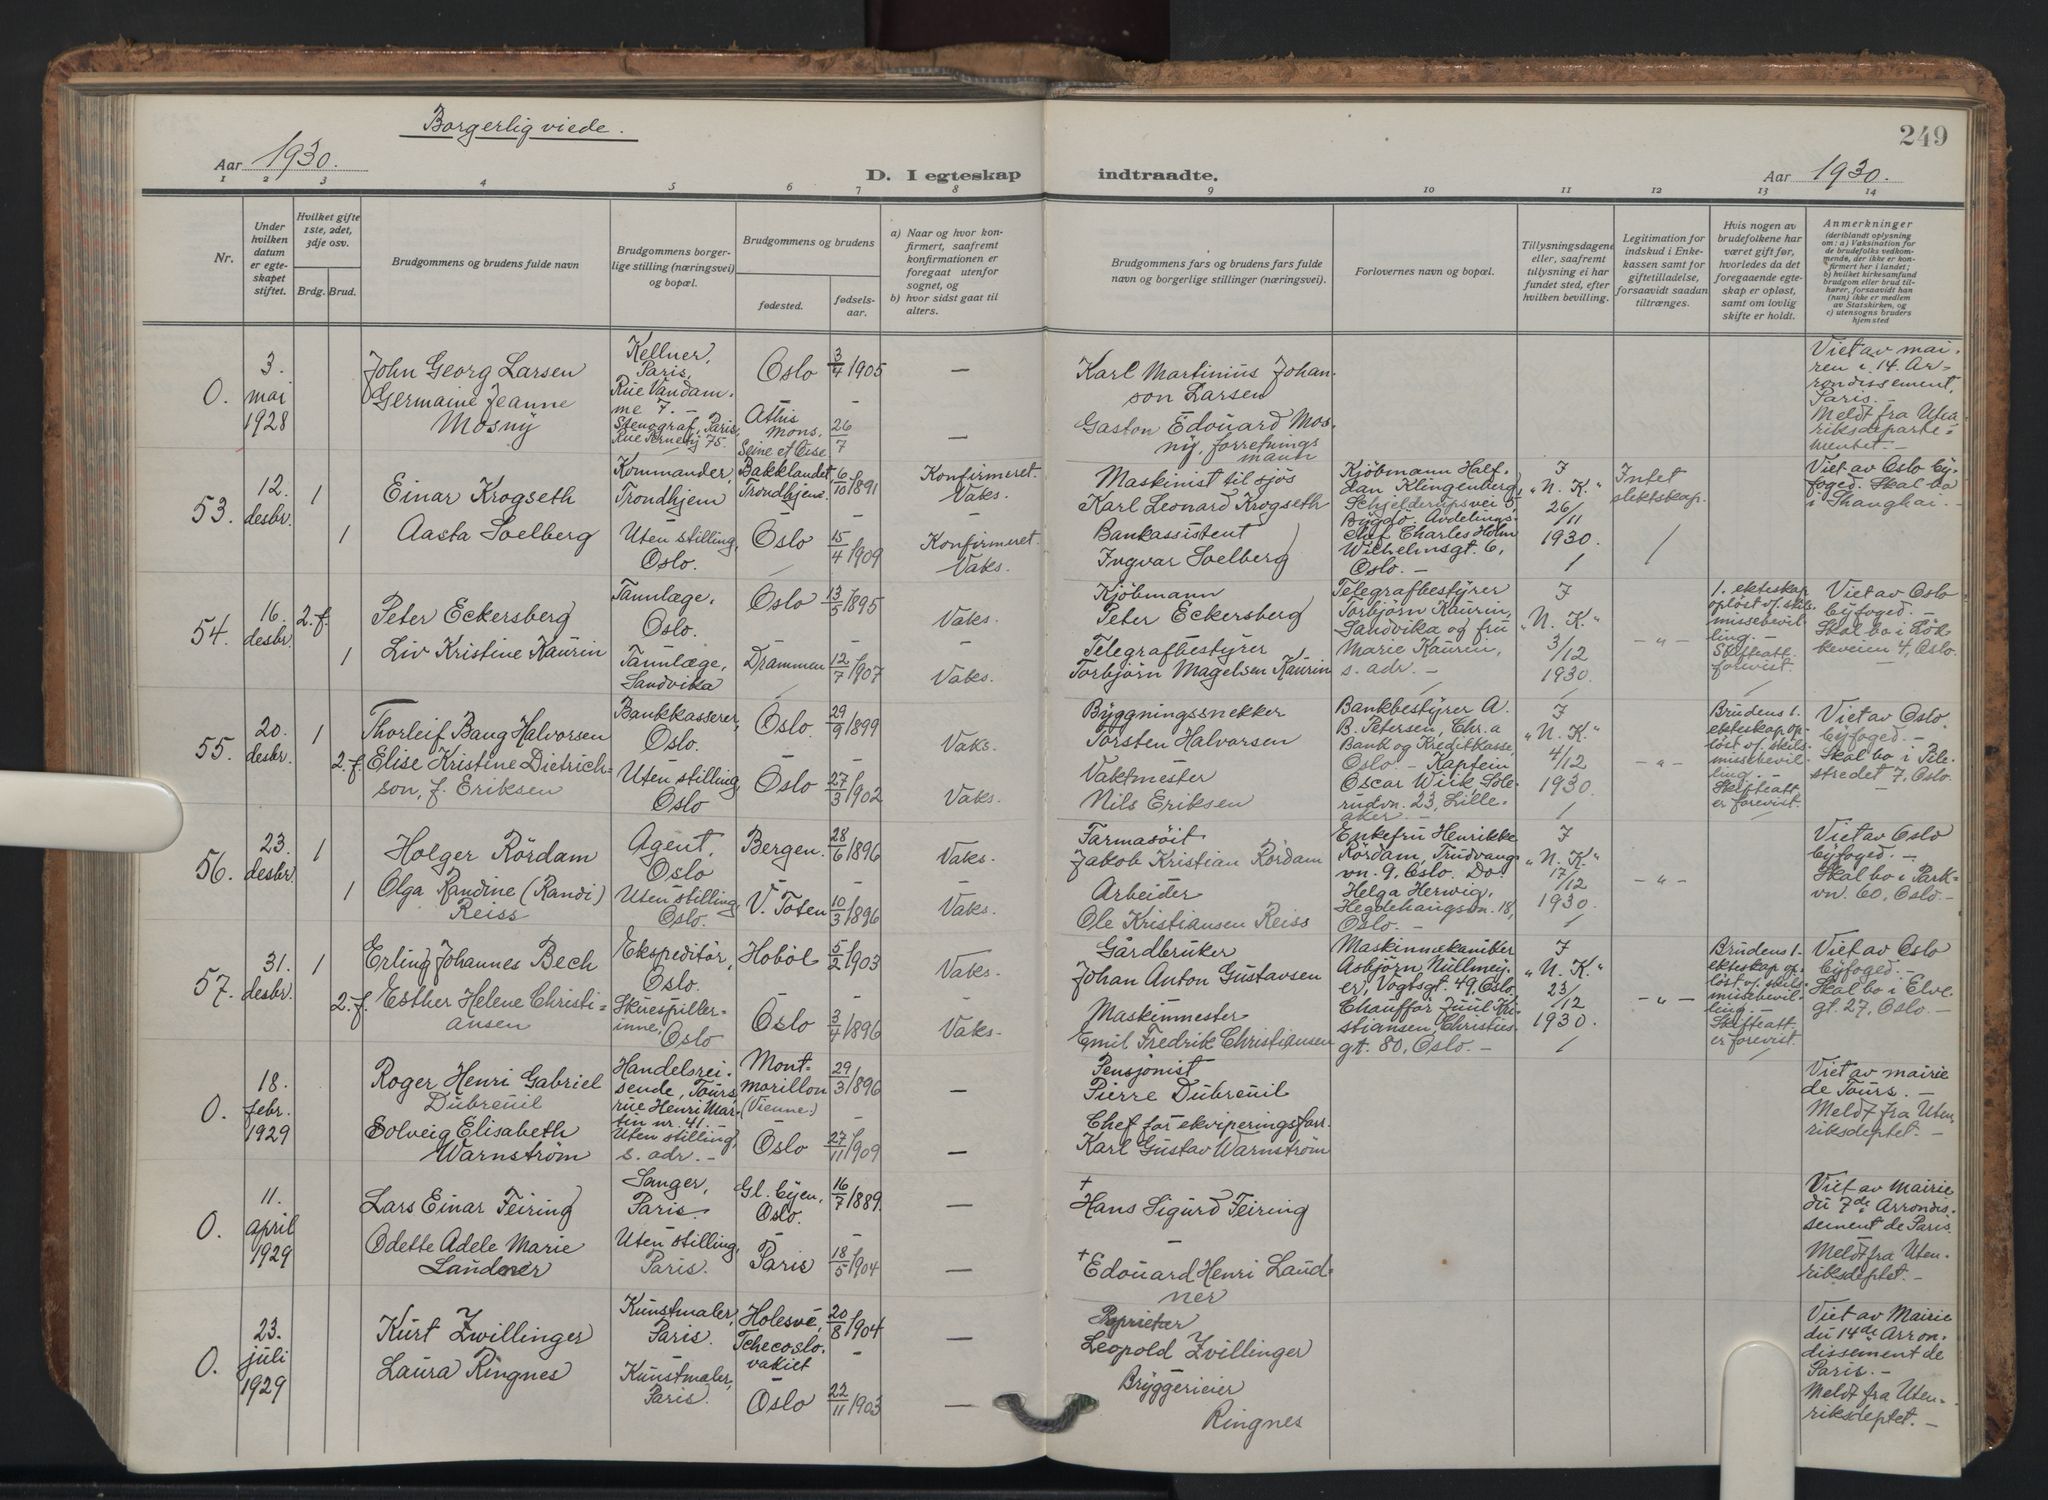 Borgerlig viede.
249
Aar 1930.
D. I egteskap indtraadte.
Aar 1930.
1 2 3 4 5 6 7 8 9 10 11 12 13 14
Nr.
Under
hvilken
datum
er egte-
skapet
stiftet.
Hvilket gifte
1ste, 2det,
3dje osv.
Brdg. Brud.
Brudgommens og brudens fulde navn
Brudgommens borger-
lige stilling (næringsvei)
og bopæl.
Brudgommens og brudens
fødested.
fødsels-
aar.
a) Naar og hvor kon-
firmert, saafremt
konfirmationen er
foregaat utenfor
sognet, og
b) hvor sidst gaat til
alters.
Brudgommens fars og brudens fars fulde
navn og borgerlige stillinger (næringsvei).
Forlovernes navn og bopæl.
Tillysningsdagene
eller, saafremt
tillysning ei har
fundet sted, efter
hvilken bevilling.
Legitimation for
indskud i Enke-
kassen samt for
giftetilladelse,
forsaavidt saadan
tiltrænges.
Hvis nogen av
brudefolkene har
været gift før,
hvorledes da det
foregaaende egte-
skap er opløst,
samt om lovlig
skifte er holdt.
Anmerkninger
(deriblandt oplysning
om: a) Vaksination for
de brudefolks vedkom-
mende, der ikke er kon-
firmert her i landet;
b) hvilket kirkesamfund
brudgom eller brud til-
hører, forsaavidt han
(hun) ikke er medlem
av Statskirken, og
c) utensogns bruders
hjemsted
0.
3.
mai
1928
John Georg Larsen
Germaine Jeanne
Mosny
Kellner,
Paris,
Rue Vandam-
me 7. –
Stenograf, Paris,
Rue Pernety 75.
Oslo 3/4 1905
–
Athis
Mons,
Seine et Oise
26/7
–
–
Karl Martinius Johan-
son Larsen
Gaston Edouard Mos-
ny, forretnings
mann
Viet av mai-
ren i 14. Ar-
rondissement,
Paris. –
Meldt fra Uten-
riksdeparte-
mentet. –
53.
12.
desbr.
1
1
Einar Krogseth
Aasta Solberg
Kommandør,
Trondhjem
Uten stilling,
Oslo.
Bakklandet,
Trondhjem
6/10 1891
–
Oslo 15/4 1909
Konfirmeret.
Vaks.
–
Konfirmeret.
Vaks.
Maskinist til sjøs
Karl Leonard Krogseth
Bankassistent
Ingvar Solberg
Kjøbmann Half-
dan Klingenberg,
Schjelderupsvei 5,
Bygdø. Avdelings-
chef Charles Holm
Wilhelmsgt. 6,
Oslo. –
I
„N. K.“
26/11
1930.
Intet
slektskap.
Viet av Oslo by-
foged. Skal bo
i Shanghai. –
54.
16.
desbr.
2. f.
1
Peter Eckersberg
Liv Kristine Kaurin
Tannlæge,
Oslo.
Tannlæge,
Sandvika
Oslo 13/5 1895
–
Drammen 12/7 1907
Vaks.
–
Vaks.
Kjøbmann
Peter Eckersberg
Telegrafbestyrer
Torbjørn Magelsen Kaurin
Telegrafbestyrer
Torbjørn Kaurin,
Sandvika og fru
Marie Kaurin,
s. adr. –
I
„N. K.“
3/12
1930.
– „ –
1. ekteskap
opløst v. skils-
missebevil-
ling. –
Skifteatt.
forevist.
Viet av Oslo
byfoged. –
Skal bo i Løk-
keveien 4, Oslo.
–
55.
20.
desbr.
1
2. f.
Thorleif Bang Halvorsen
Elise Kristine Dietrich-
son, f. Eriksen
Bankkasserer,
Oslo.
Uten stilling,
Oslo
Oslo. 29/9 1899
–
Oslo 27/3 1902
Vaks.
–
Vaks.
Bygningssnekker
Torsten Halvorsen
Vaktmester
Nils Eriksen
Bankbestyrer A.
B. Petersen, Chr.a
Bank og Kreditkasse,
Oslo. – Kaptein
Oscar Wiik, Sole-
rudvn. 23, Lille-
aker –
I
„N. K.“
4/12
1930.
– „ –
Brudens 1.
ekteskap op-
løst v. skils-
missebevil-
ling. –
Skifteatt.
er forevist.
Viet av Oslo
byfoged. –
Skal bo i Pile-
stredet 7, Oslo.
56.
23.
desbr.
1
1
Holger Rördam
Olga Randine (Randi)
Reiss
Agent,
Oslo
Uten stilling,
Oslo.
Bergen. 28/6 1896
–
V. Toten 10/3 1896
Vaks.
–
Vaks.
Farmasöit
Jakob Kristian Rördam
Arbeider
Ole Kristiansen Reiss
Enkefru Henrikke
Rördam, Trudvang-
vn. 9, Oslo. Do.
Helga Herwig,
Hegdehaugsvn. 18,
Oslo. –
I
„N. K.“
17/12
1930.
– „ –
Viet av Oslo
byfoged. –
Skal bo i Park-
vn. 60, Oslo. –
57.
31.
desbr.
1
2. f.
Erling Johannes Bech
Esther Helene Christi-
ansen
Ekspeditør,
Oslo.
Skuespiller-
inne,
Oslo
Hobøl 5/2 1903
–
Oslo 3/7 1896
Vaks.
–
Vaks.
Gårdbruker
Johan Anton Gustavsen
Maskinmester
Emil Fredrik Christiansen
Maskinmekaniker
Asbjørn Nullmey-
er, Vogtsgt. 49, Oslo.
Chauffør Juul Kri-
stiansen, Christies
gt. 80, Oslo. –
I
„N. K.“
23/12
1930.
– „ –
Brudens 1.
ekteskap op-
løst v. skils-
missebevil-
ling. –
Skifteatt.
er forevist.
Viet av Oslo
byfoged. –
Skal bo i Elve-
gt. 27, Oslo. –
0.
18.
febr.
1929
Roger Henri Gabriel
Dubreuil
Solveig Elisabeth
Warnström
Handelsrei-
sende, Tours,
rue Henri Mar-
tin nr. 41. –
Uten stilling,
s. adr. –
Mont-
morillon
(Vienne.)
29/3 1896
–
Oslo 27/11 1909
–
–
Pensjonist
Pierre Dubreuil
Chef for ekviperingsforr.
Karl Gustav Warnström
Viet av mairie
de Tours. –
Meldt fra Uten-
riksdeptet. –
0.
11.
april
1929
Lars Einar Feiring
Odette Adele Marie
Laudner
Sanger,
Paris.
Uten stilling,
Paris.
Gl. byen,
Oslo.
16/7 1889
–
Paris 18/5 1904
–
–
†
Hans Sigurd Feiring
–
† Edouard Henri Laud-
ner
Viet av Mairie
du 7de Arrondis-
sement de Paris
Meldt fra Uten-
riksdeptet. –
0.
23.
juli
1929
Kurt Zwillinger
Laura Ringnes
Kunstmaler,
Paris.
Kunstmaler,
Paris.
Holesve,
Tchecoslo-
vakiet
20/8 1904
–
Oslo 22/11 1903
–
–
Proprietær
Leopold Zvillinger
Bryggerieier
Ringnes
Viet av Mairie
du 14de Arron-
dissement de
Paris. –
Meldt fra Uten-
riksdeptet. –